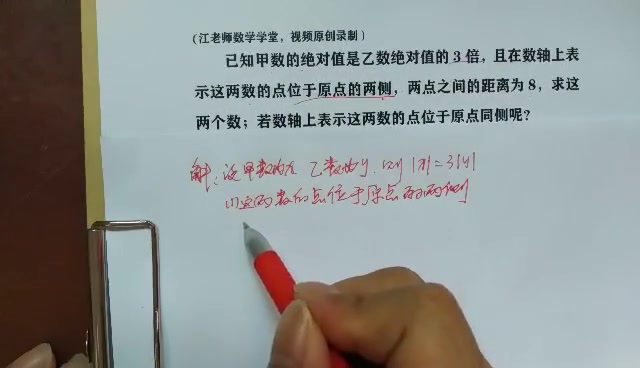 （江老师数学学堂，视频原创录制）
已知甲数的绝对值是乙数绝对值的3倍，且在数轴上表
示这两数的点位于原点的两侧，两点之间的距离为8，求这
两个数；若数轴上表示这两数的点位于原点同侧呢？
解：设甲数为x 乙数为y，则 |x|=3|y|
(1)当两数的点位于原点的两侧